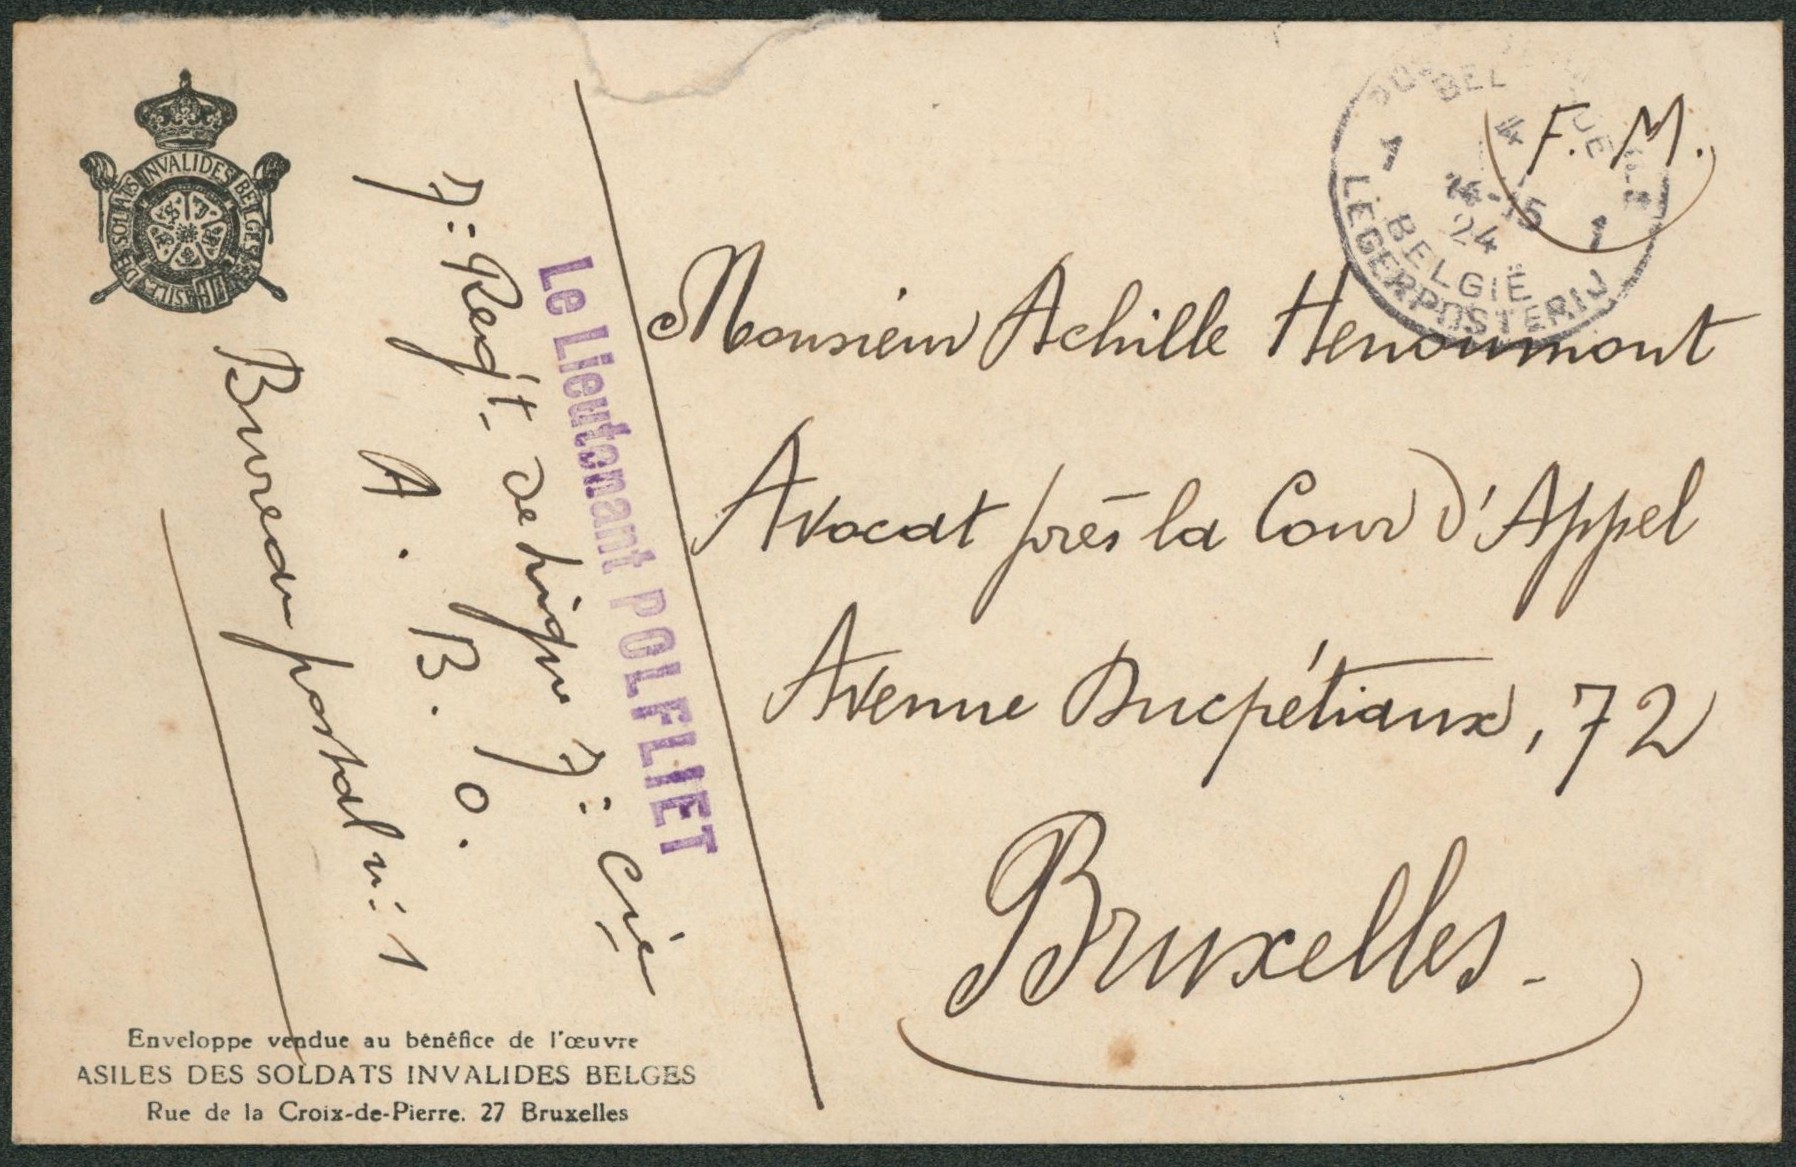 DES SOLDATS INVALIDES BELGES
ASILES
F. M.
1 4 1
14-15
24
BELGIË
LEGERPOSTERIJ
Monsieur Achille Henoumont
Avocat près la Cour d'Appel
Avenue Ducpétiaux, 72
Bruxelles.
Le Lieutenant POLFLIET
7: Reg't. de ligne 7: Cie
A. B. O.
Bureau postal n: 1
Enveloppe vendue au bénéfice de l'œuvre
ASILES DES SOLDATS INVALIDES BELGES
Rue de la Croix-de-Pierre. 27 Bruxelles